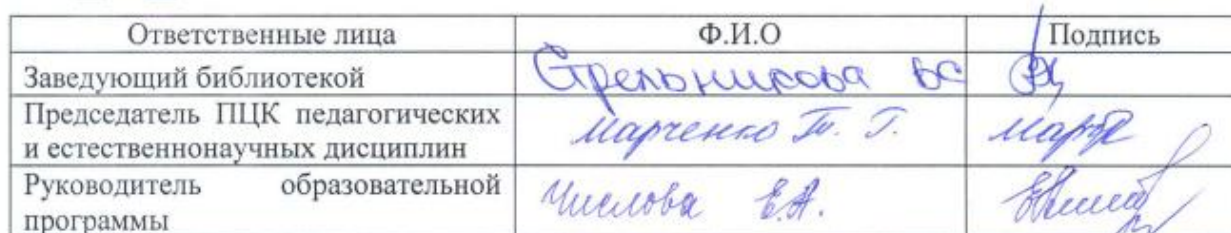 Ответственные лица Ф.И.О Подпись
Заведующий библиотекой Стрельникова ВС
Председатель ПЦК педагогических
и естественнонаучных дисциплин Марченко Т. Г.
Руководитель образовательной
программы Числова Е.А.